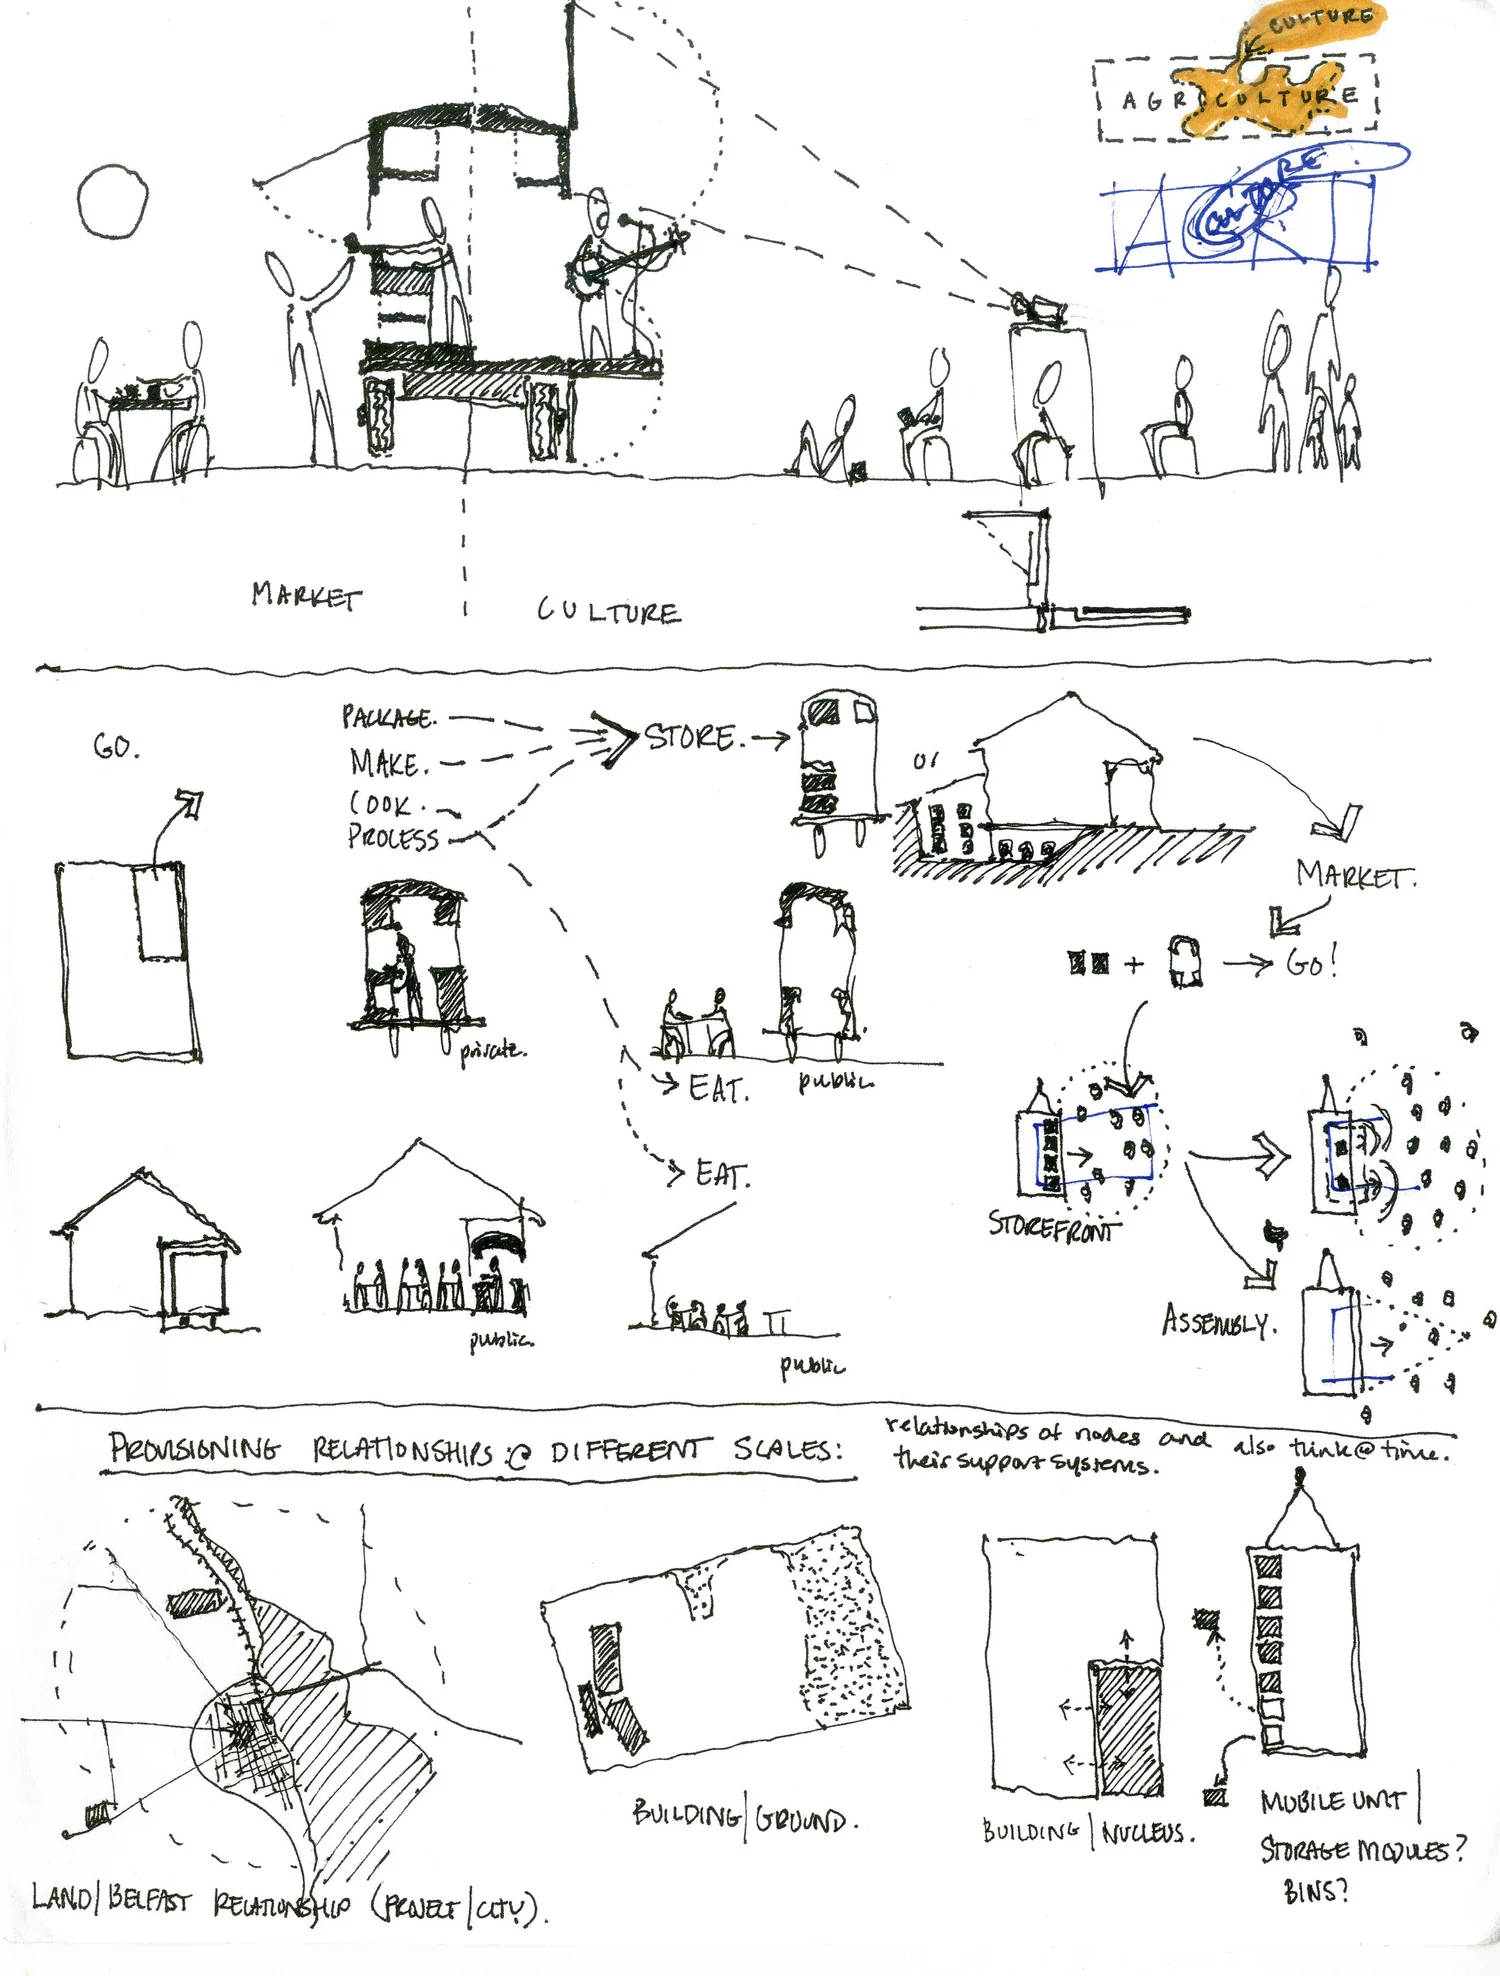 CULTURE
AGRICULTURE
CULTURE
ART
MARKET
CULTURE
GO.
PACKAGE.
MAKE.
COOK.
PROCESS
STORE.
or
MARKET.
+
GO!
private.
EAT.
public
EAT.
STOREFRONT
ASSEMBLY.
public.
public
PROVISIONING RELATIONSHIPS @ DIFFERENT SCALES:
relationships of nodes and
their support systems.
also think @ time.
LAND/BELFAST RELATIONSHIP (PROJECT/CITY).
BUILDING/GROUND.
BUILDING/NUCLEUS.
MOBILE UNIT/
STORAGE MODULES?
BINS?